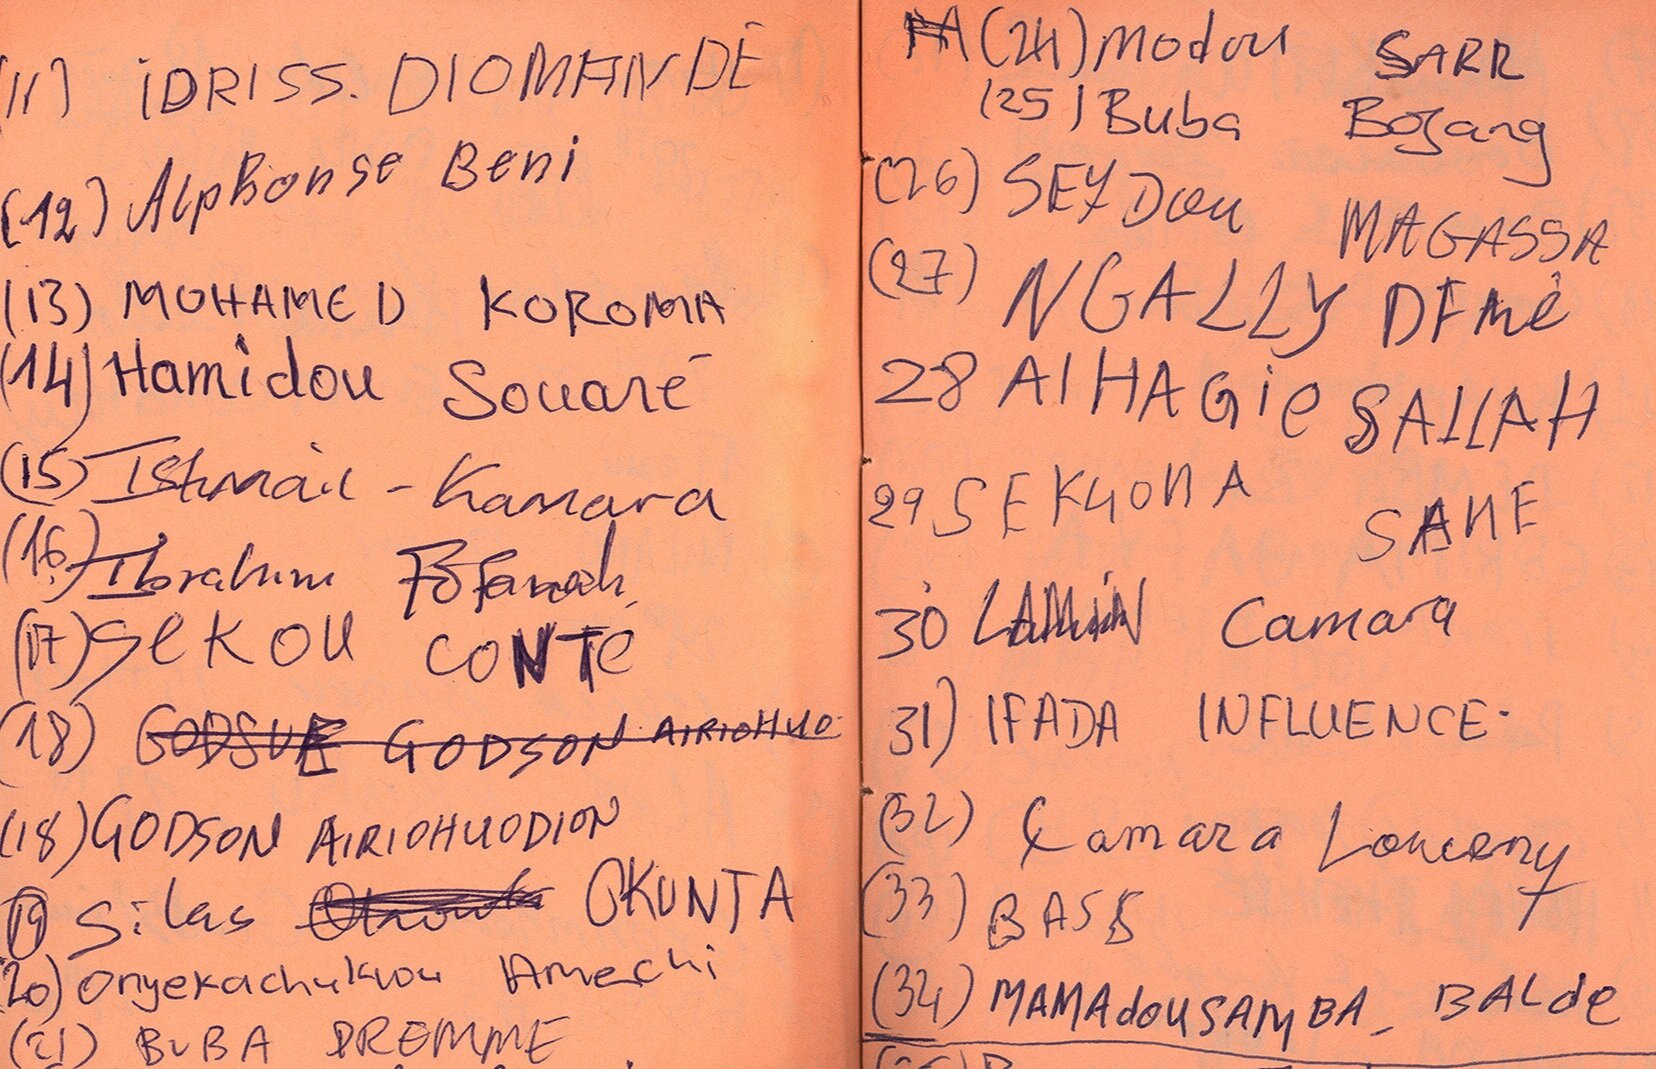 (11) iDRISS. DIOMANDÉ
(12) Alphonse Beni
(13) MOHAMED KOROMA
(14) Hamidou Souaré
(15) Ishmail - Kamara
(16) Ibrahim Fofanah
(17) SeKOU CONTE
(18) GODSUE GODSON AIRIOHUO
(18) GODSON AIRIOHUODION
(19) Silas OKUNTA
(20) Onyekachukwu Amechi
(21) BUBA DREMME
(24) Modou SARR
(25) Buba Bojang
(26) SEYDou MAGASSA
(27) NGALLY DEMé
28 AlHAGie SALLAH
29 SEKUONA SANE
30 LAMIN Camara
31) IFADA INFLUENCE.
(32) Camara Lonceny
(33) BASS
(34) MAMAdOUSAMBA - BALde